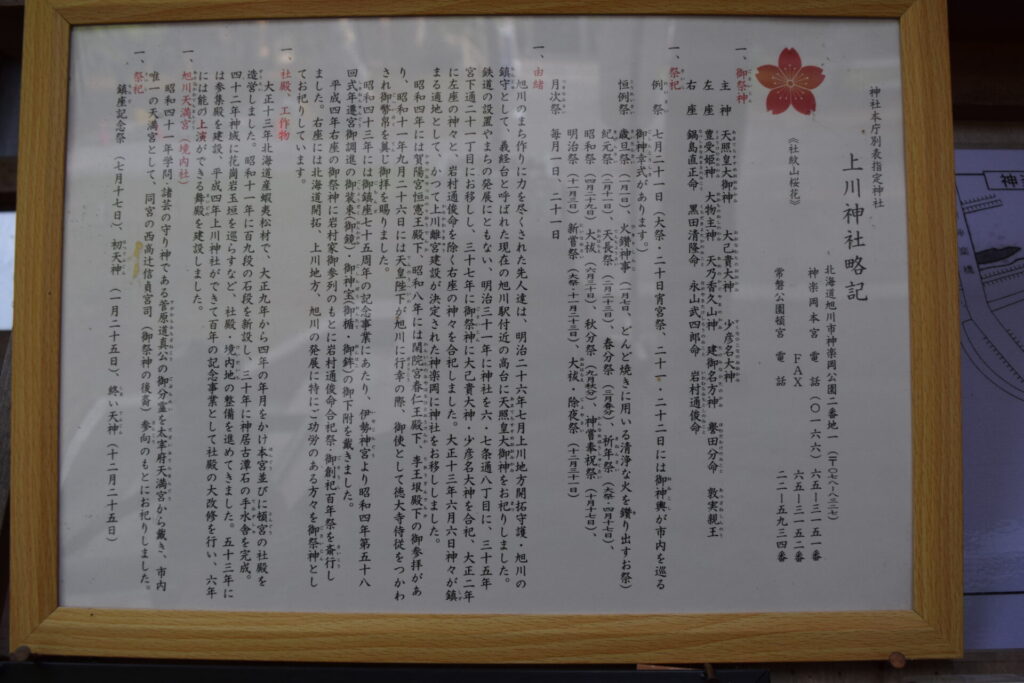 神社本庁別表指定神社
上川神社略記
北海道旭川市神楽岡公園二番地一(〒〇七八-八三二七)
神楽岡本宮 電話(〇一六六)六五-三一五一番
FAX 六五-三一五二番
常磐公園頓宮 電話 二二-五九三四番
《社紋山桜花》
一、御祭神
主神 天照皇大御神 大己貴大神 少彦名大神
左座 豊受姫神 大物主神 天乃香久山神 建御名方神 誉田分命 敦実親王
右座 鍋島直正命 黒田清隆命 永山武四郎命 岩村通俊命
一、祭祀
例祭 七月二十一日(大祭・二十日宵宮祭、二十一・二十二日には御神輿が市内を巡る
御神幸式があります)。
恒例祭 歳旦祭(一月一日)、火鑚神事(一月七日、どんど焼きに用いる清浄な火を鑚り出すお祭)
紀元祭(二月十一日)、天長祭(二月二十三日)、春分祭(三月春分)、祈年祭(大祭・四月十七日)、
昭和祭(四月二十九日)、大祓(六月三十日)、秋分祭(九月秋分)、神嘗奉祝祭(十月十七日)、
明治祭(十一月三日)、新嘗祭(大祭・十一月二十三日)、大祓、除夜祭(十二月三十一日)
月次祭 毎月一日、二十一日
一、由緒
旭川のまち作りに力を尽くされた先人達は、明治二十六年七月上川地方開拓守護・旭川の
鎮守として、義経台と呼ばれた現在の旭川駅付近の高台に天照皇大御神をお祀りしました。
鉄道の設置やまちの発展にともない、明治三十一年に神社を六・七条通八丁目に、三十五年
宮下通二十一丁目にお移しし、三十七年に御祭神に大己貴大神・少彦名大神を合祀、大正二年
に左座の神々と、岩村通俊命を除く右座の神々を合祀しました。大正十三年六月六日神々が鎮
まる適地として、かつて上川離宮建設が決定された神楽岡に神社をお移ししました。
昭和四年には賀陽宮恒憲王殿下、昭和八年には閑院宮春仁王殿下、李王垠殿下の御参拝があ
り、昭和十一年九月二十六日には天皇陛下が旭川に行幸の際、御使として徳大寺侍従をつかわ
され御幣帛を奠じ御拝を賜りました。
昭和四十三年には御鎮座七十五周年の記念事業にあたり、伊勢神宮より昭和四年第五十八
回式年遷宮御調進の御装束(御鏡)・御神宝(御楯・御鉾)の御下附を戴きました。
平成四年右座の御祭神に岩村家御参列のもとに岩村通俊命合祀祭 御創祀百年祭を斎行し
ました。右座には北海道開拓、上川地方、旭川の発展に特にご功労のある方々を御祭神とし
てお祀りしています。
一、社殿、工作物
大正十三年北海道産蝦夷松材で、大正九年から四年の年月をかけ本宮並びに頓宮の社殿を
造営しました。昭和十一年に百九段の石段を新設し、三十年に神居古潭石の手水舎を完成。
四十二年神域に花崗岩玉垣を巡らすなど、社殿・境内地の整備を進めてきました。五十三年に
は参集殿を建設、平成四年上川神社ができて百年の記念事業として社殿の大改修を行い、六年
には能の上演ができる舞殿を建設しました。
一、旭川天満宮(境内社)
昭和四十一年学問、諸芸の守り神である菅原道真公の御分霊を太宰府天満宮から戴き、市内
唯一の天満宮として、同宮の西高辻信貞宮司(御祭神の後裔)参向のもとにお祀りしました。
一、祭祀
鎮座記念祭(七月十七日)、初天神(一月二十五日)、終い天神(十二月二十五日)